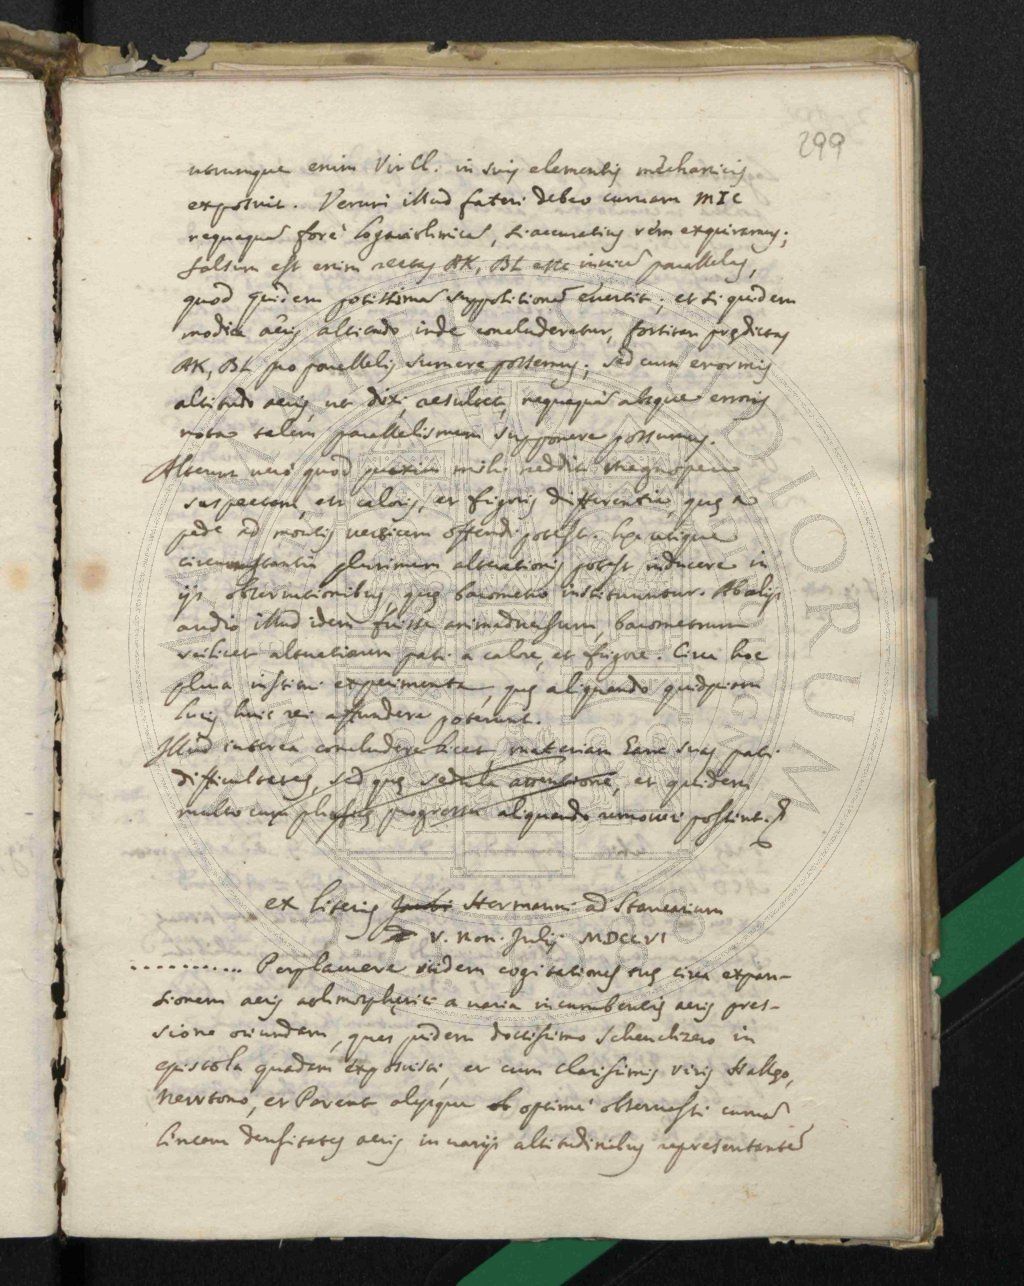 299
utrumque enim Vir Cl. in suis elementis mechanicis
exposuit. Verum illud fateri debeo curvam MIC
nequaquã forè logarithmicã, si accuratius rem exquiramus;
falsum est enim rectas AK, BL esse invicẽ parallelas,
quod quidem potissimã suppositionẽ evertit; et si quidem
modica aëris altitudo inde concluderetur, fortitan prędictas
AK, BL pro parallelis sumere possemus; sed cum enormis
altitudo aeris, ut dixi, resultet, nequaquã absque erroris
nota talem parallelismum supponere possumus.
Alterum verò quod mihi reddit magnopere
suspectam, est caloris, et frigoris differentia, quę a
pede ad montis verticem offendi potest. hęc utique
circumstantia plurimum alterationis potest inducere in
ijs observationibus, quę barometro instituuntur. Ab alijs
audio illud idem fuisse animadversum, barometrum
scilicet alterationem pati a calore, et frigore. Circa hoc
plura institui experimenta, quę aliquando quidpiam
lucis huic rei affundere poterunt.
Illud interea concludere licet, materiam hanc suas pati
difficultates, sed quę sedula attentione, et quidem
multo cum phisicę progressu aliquando removeri possint.
ex literis Jacobi Hermanni ad Stancarium
V. Non. Julij MDCCVI
........... Perplacuere itidem cogitationes tuę circa expan-
sionem aeris athmosphęrici a varia incumbentis aeris pres-
sione oriundam, quas pridem doctissimo Scheuchzero in
epistola quadam exposuisti, et cum clarissimis viris Hallęo,
Newtono, et Parent alijsque optimè observasti curvã
lineam densitates aeris in varijs altitudinibus repręsentantẽ